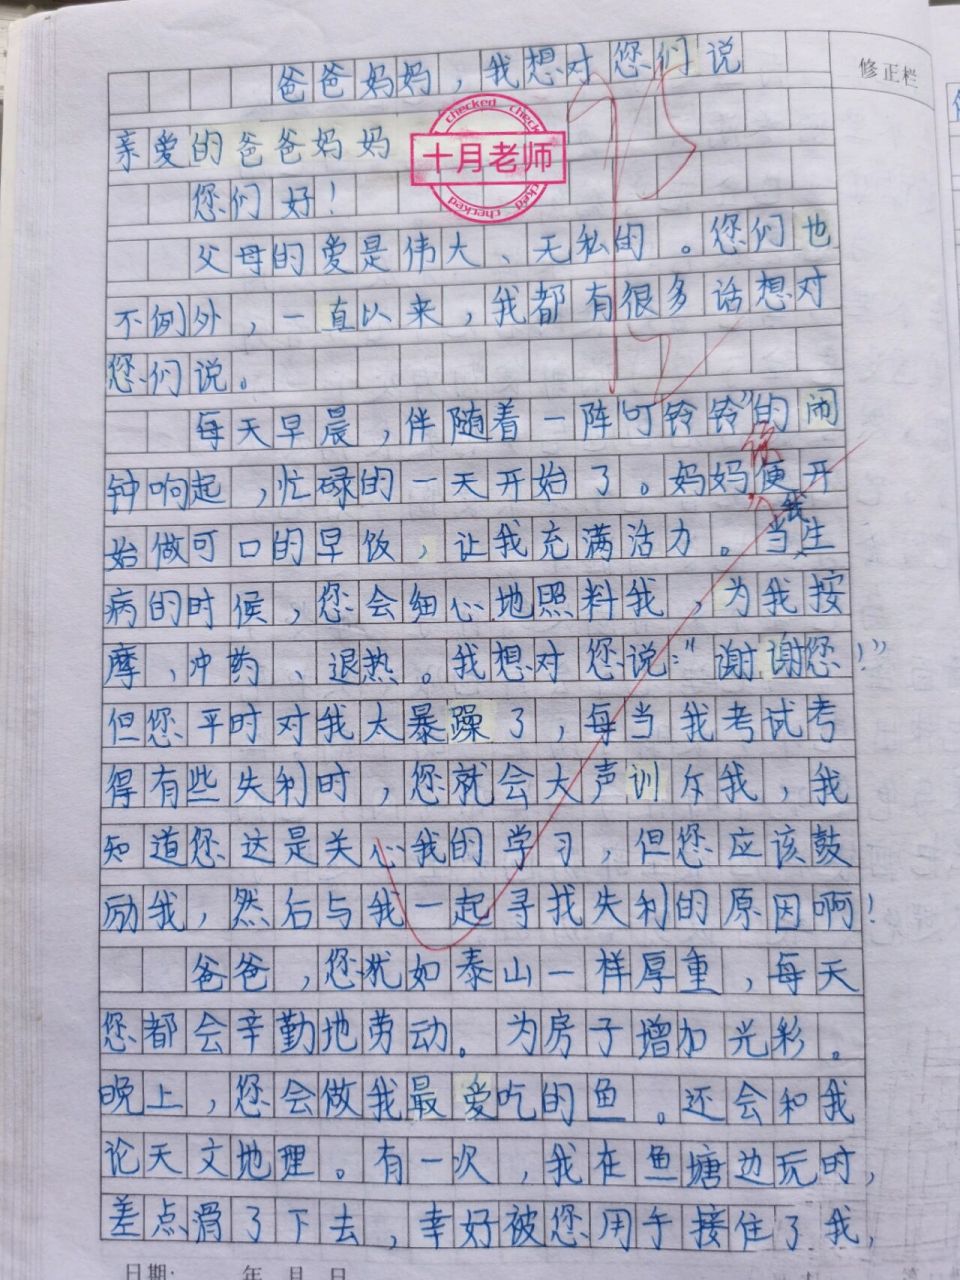 爸爸妈妈，我想对您们说
修正栏
亲爱的爸爸妈妈
checked
十月老师
checked
您们好！
父母的爱是伟大、无私的。您们也
不例外，一直以来，我都有很多话想对
您们说。
每天早晨，伴随着一阵“叮铃铃”的闹
钟响起，忙碌的一天开始了。妈妈你便开
始做可口的早饭，让我充满活力。当我生
病的时候，您会细心地照料我，为我按
摩，冲药、退热。我想对您说：“谢谢您！”
但您平时对我太暴躁了，每当我考试考
得有些失利时，您就会大声训斥我，我
知道您这是关心我的学习，但您应该鼓
励我，然后与我一起寻找失利的原因啊！
爸爸，您犹如泰山一样厚重，每天
您都会辛勤地劳动。为房子增加光彩。
晚上，您会做我最爱吃的鱼。还会和我
论天文地理。有一次，我在鱼塘边玩时，
差点滑了下去，幸好被您用手接住了我，
日期: 年 月 日